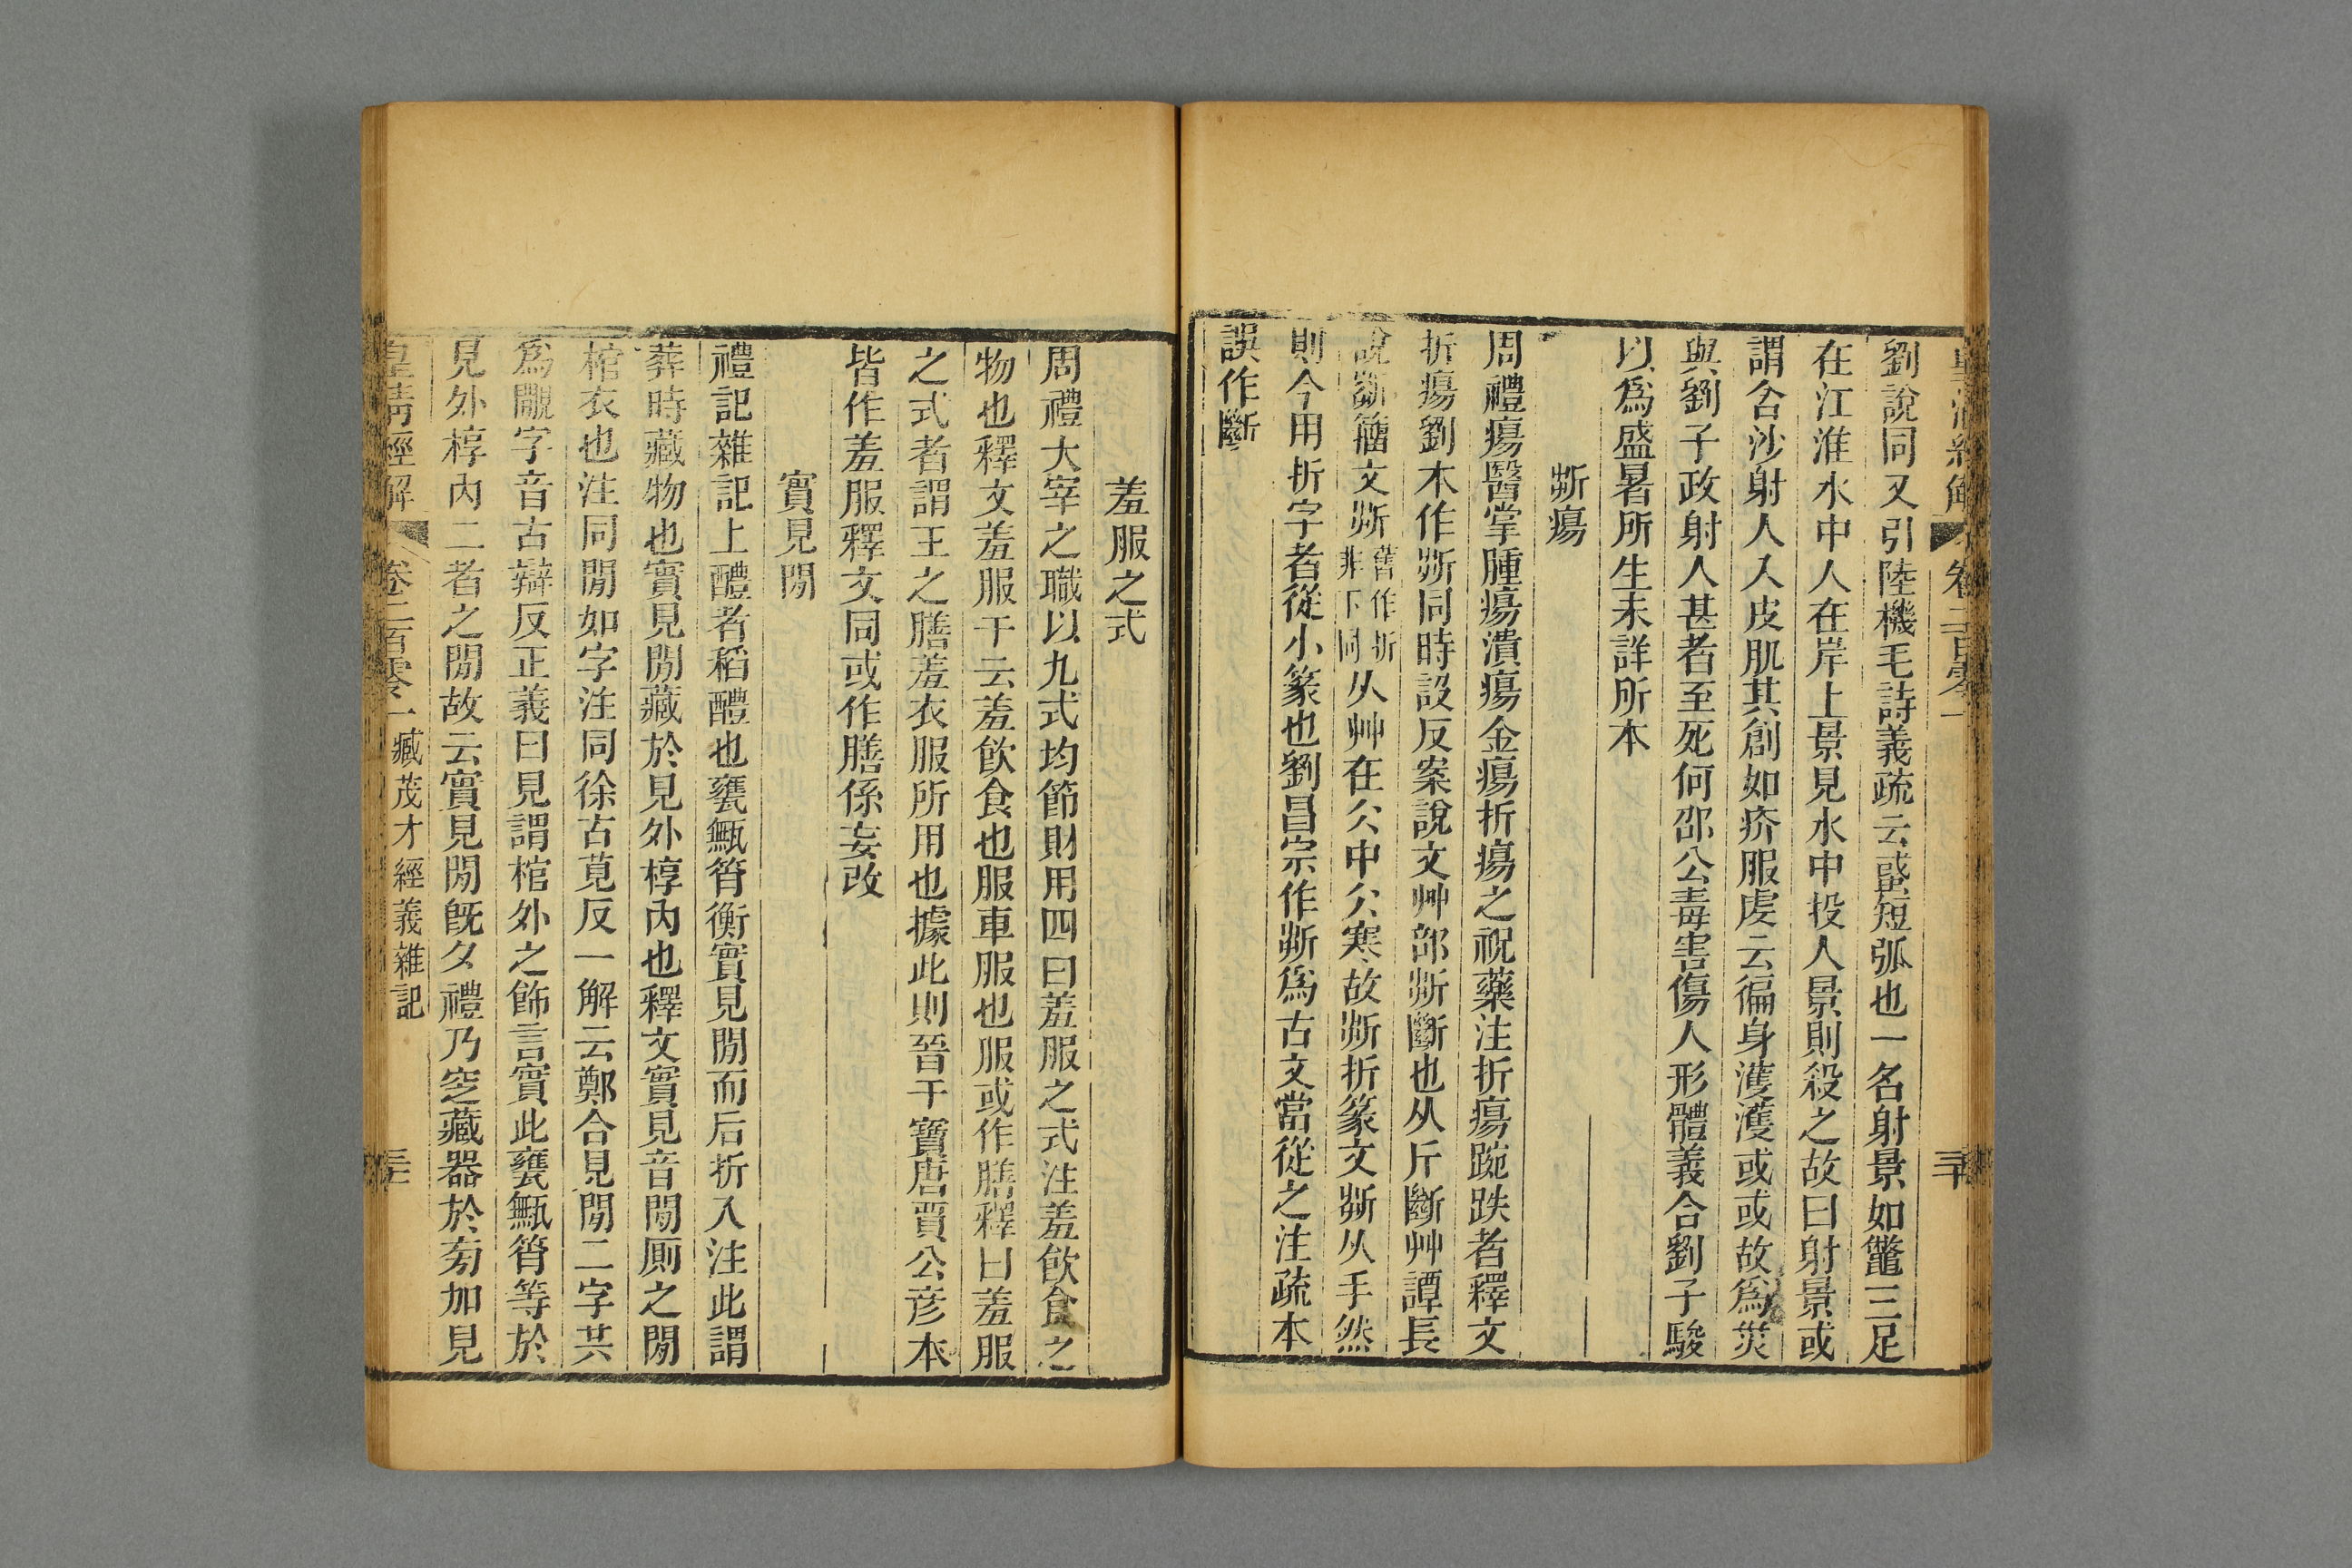 劉說同又引陸機毛詩義疏云蜮短弧也一名射景如鼈三足
在江淮水中人在岸上景見水中投人景則殺之故曰射景或
謂含沙射人入皮肌其創如疥服虔云徧身濩濩或或故爲災
與劉子政射人甚者至死何邵公毒害傷人形體義合劉子駿
以爲盛暑所生未詳所本
㪿瘍
周禮瘍醫掌腫瘍潰瘍金瘍折瘍之祝藥注折瘍踠跌者釋文
折瘍劉本作㪿同時設反案說文艸部㪿斷也从斤斷艸譚長
說𣂚籒文㪿舊作折非下同从艸在仌中仌寒故㪿折篆文㪿从手然
則今用折字者從小篆也劉昌宗作㪿爲古文當從之注疏本
誤作斷
羞服之式
周禮大宰之職以九式均節財用四曰羞服之式注羞飲食之
物也釋文羞服干云羞飲食也服車服也服或作膳釋曰羞服
之式者謂王之膳羞衣服所用也據此則晉干寶唐賈公彥本
皆作羞服釋文同或作膳係妄改
實見閒
禮記雜記上醴者稻醴也罋甒筲衡實見閒而后折入注此謂
葬時藏物也實見閒藏於見外椁內也釋文實見音閒厠之閒
棺衣也注同閒如字注同徐古莧反一解云鄭合見閒二字共
爲覵字音古辯反正義曰見謂棺外之飾言實此罋甒筲等於
見外椁內二者之閒故云實見閒旣夕禮乃窆藏器於㫄加見
皇淸經解 卷二百零一 臧茂才經義雜記